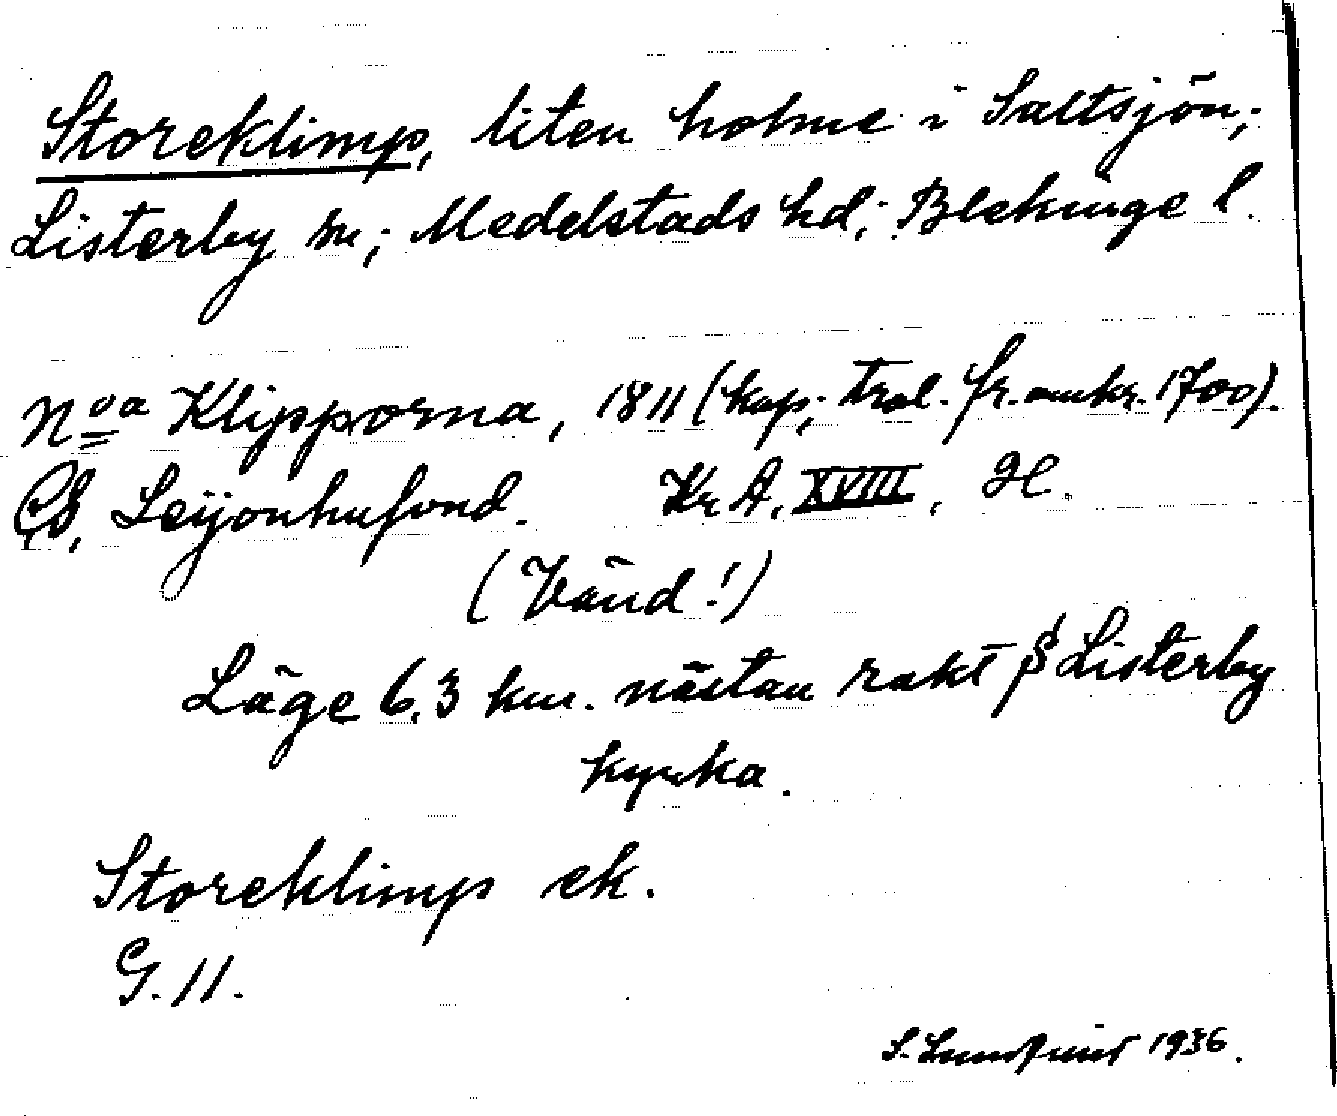 Storeklimp, liten holme i Saltsjön,;
Listerby sn,; Medelstads hd,; Blekinge l.
N:oa Klipporna, 1811 (kap; trol. fr. omkr. 1700).
C.G. Leijonhufvud. Kr. A. XVIII, H.
(Vänd!)
Läge 6,3 km. nästan rakt S Listerby
kyrka.
Storeklimp ek.
G. 11.
S. Lundquist 1936.